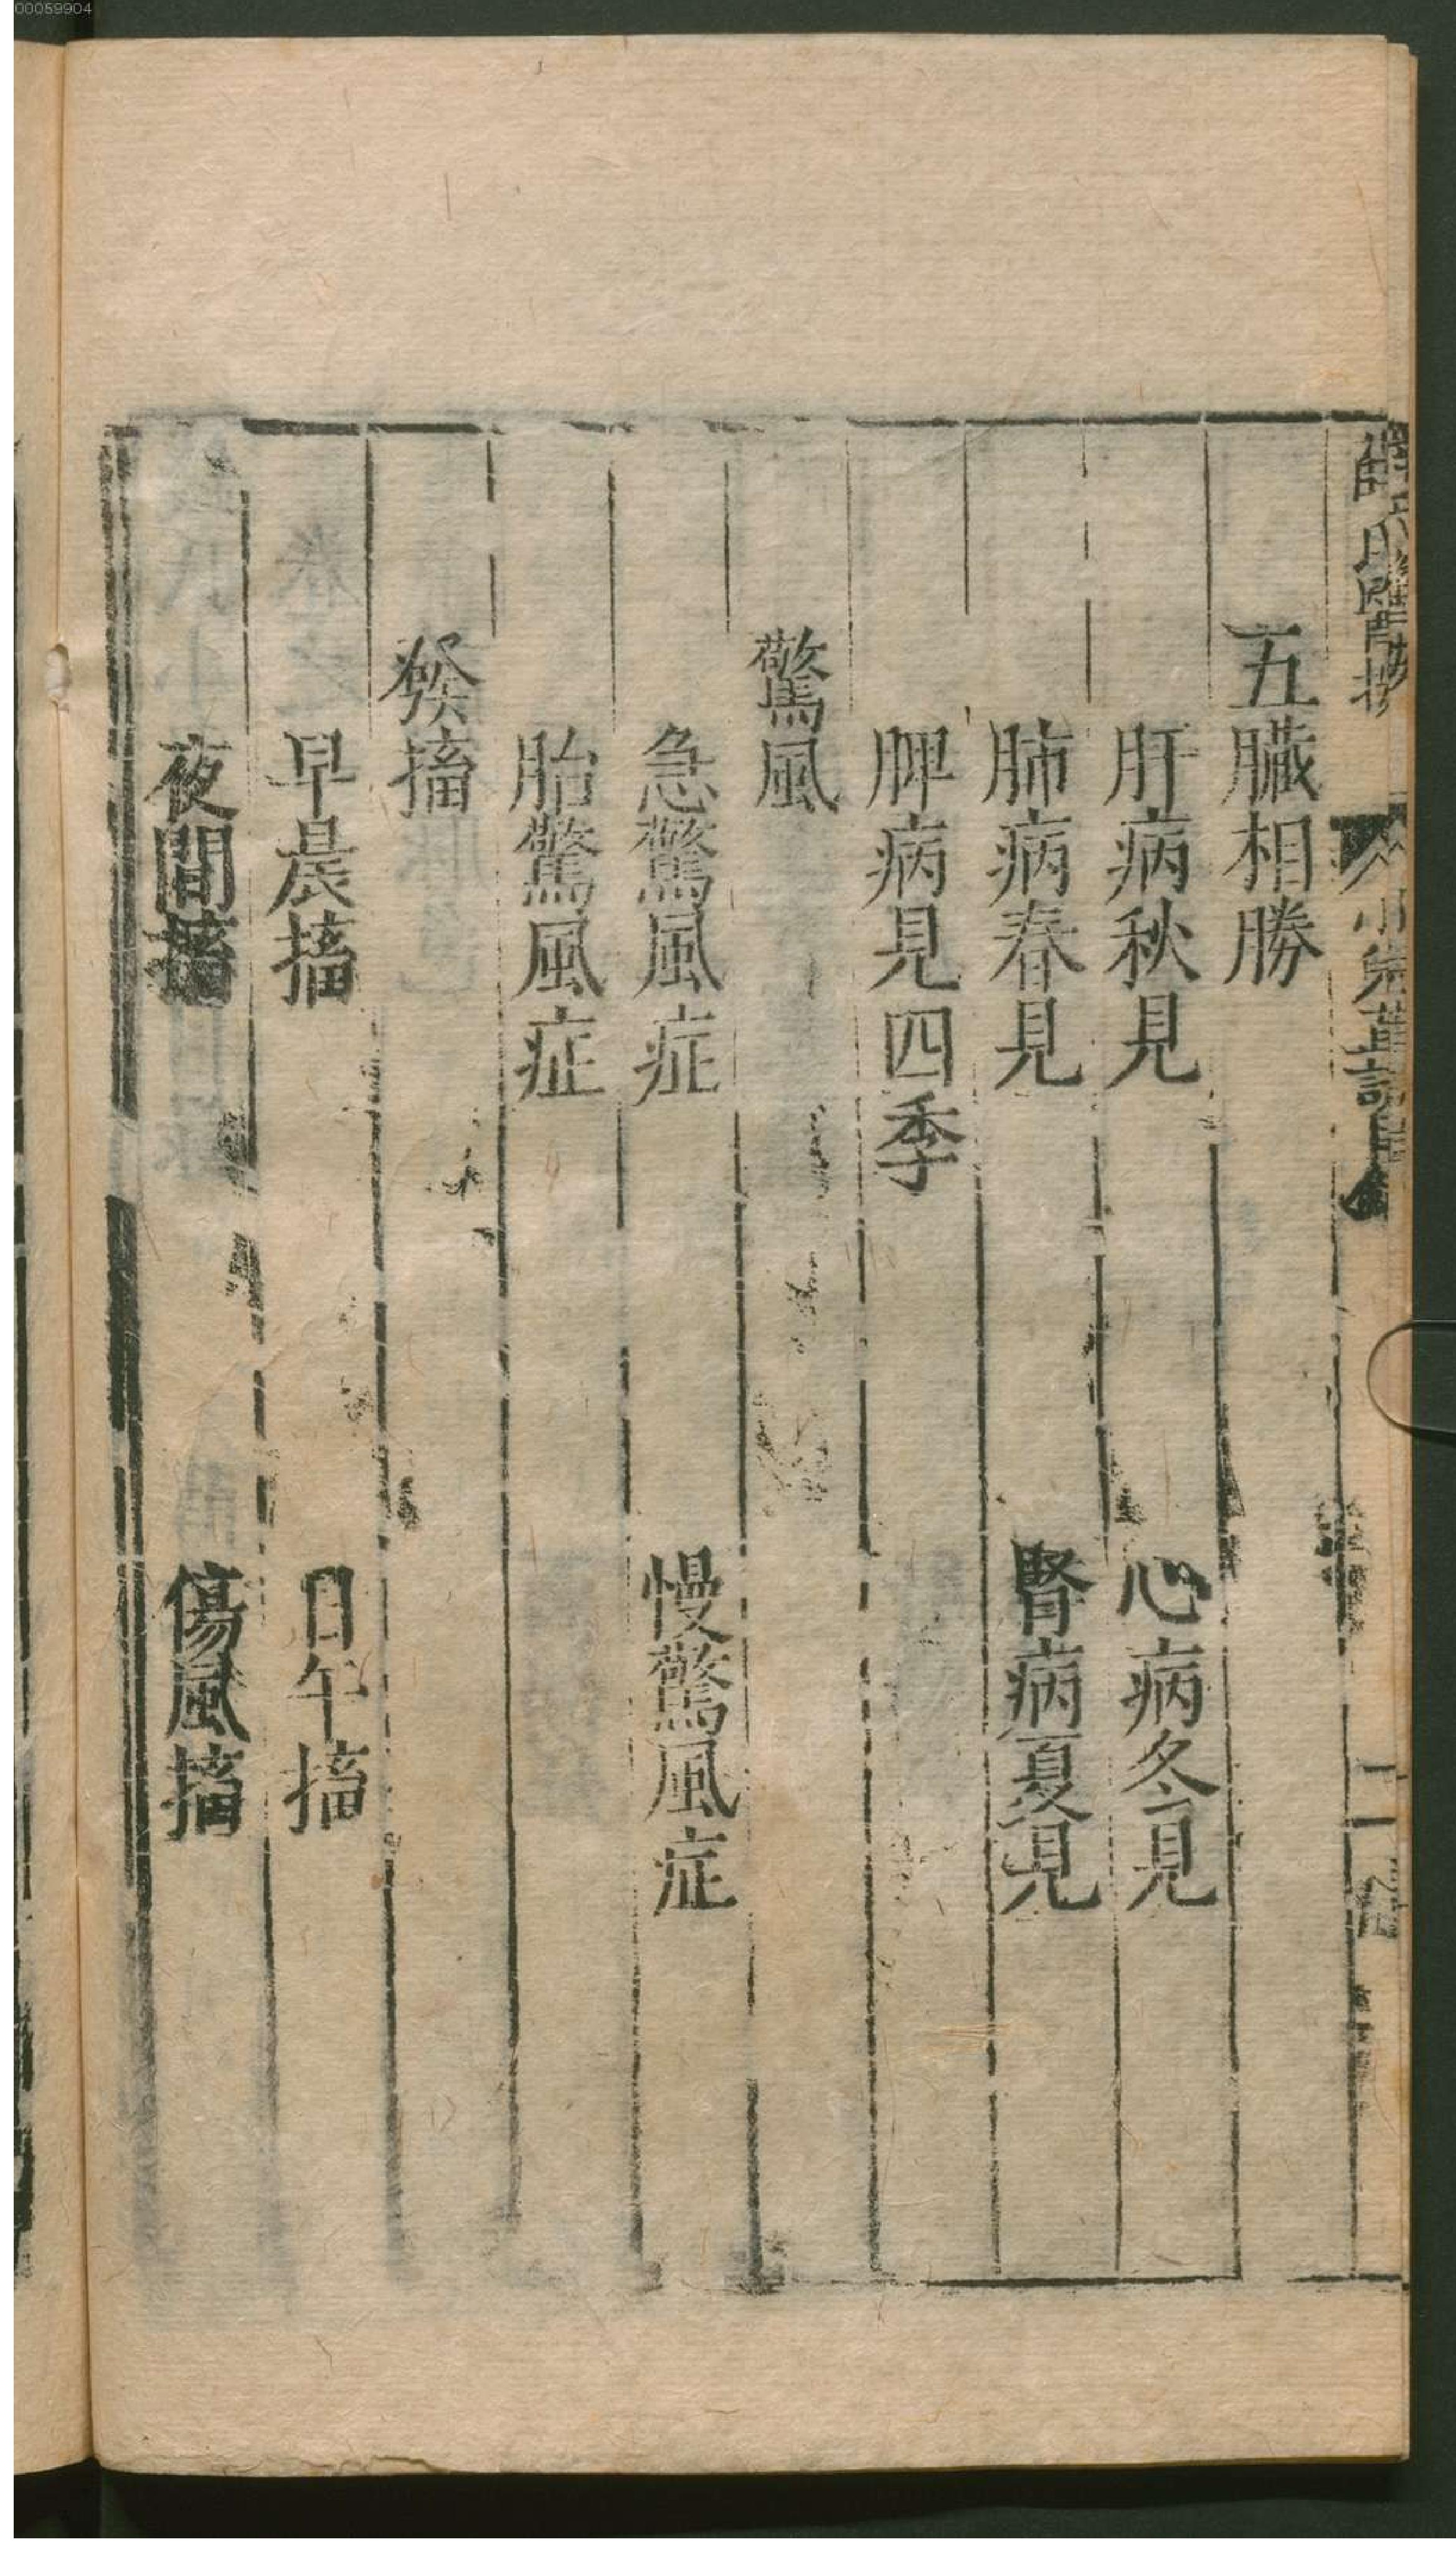 00059904
五臟相勝
肝病秋見　心病冬見
肺病春見　腎病夏見
脾病見四季
驚風
急驚風症　慢驚風症
胎驚風症
發搐
早晨搐　日午搐
夜間搐　傷風搐